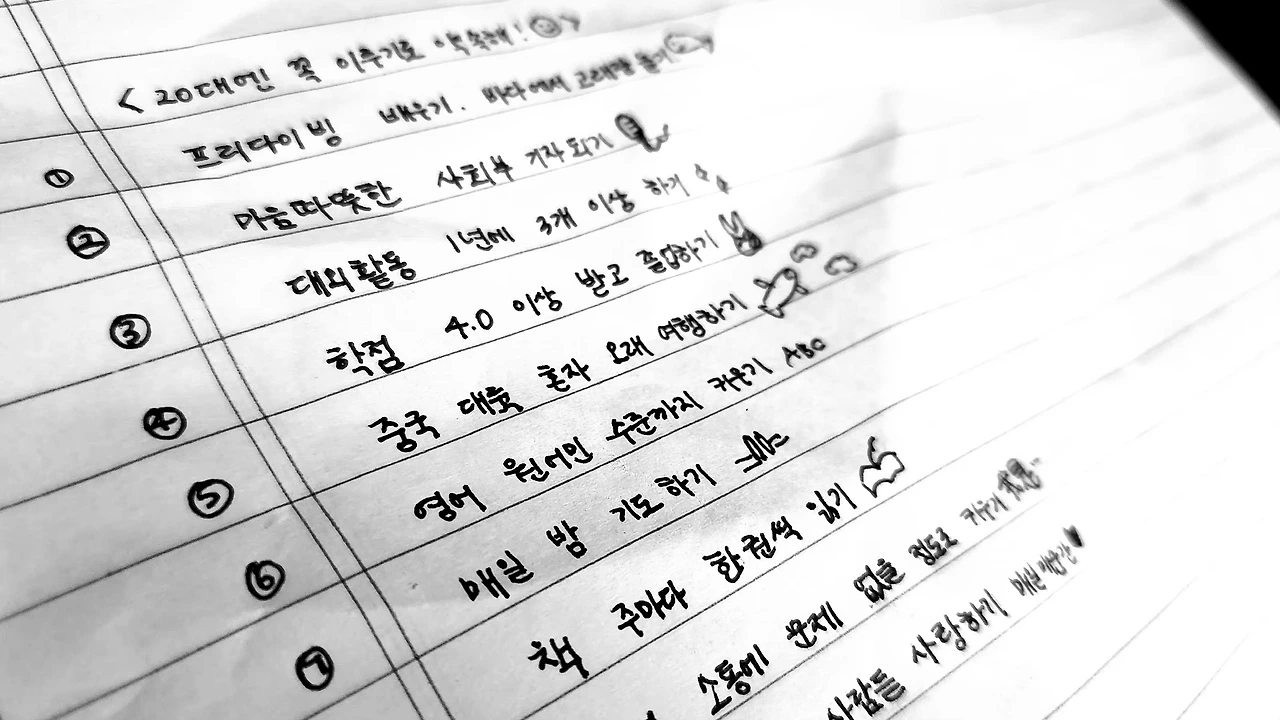 < 20대엔 꼭 이루기로 약속해! >
① 프리다이빙 배우기. 바다에서 고래랑 놀기
② 마음따뜻한 사회부 기자 되기
③ 대외활동 1년에 3개 이상 하기
④ 학점 4.0 이상 받고 졸업하기
⑤ 중국 대륙 혼자 오래 여행하기
⑥ 영어 원어민 수준까지 키운기 ABC
⑦ 매일 밤 기도하기
책 주마다 한권씩 읽기
소통에 문제 없을 정도로 키우기
사람들 사랑하기 매일 매순간♥